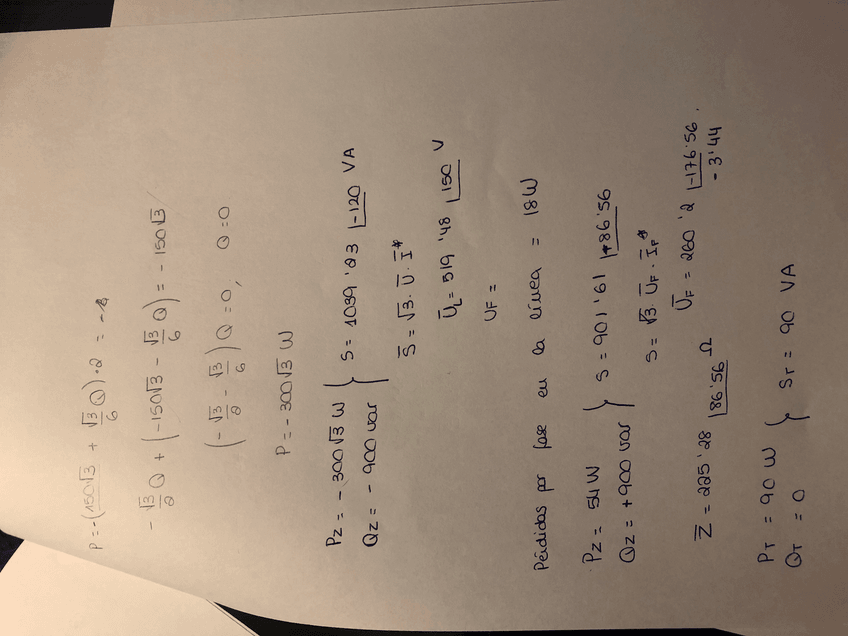 P = -(150√3 + √3/6 Q)·2 =
-√3/2 Q + (-150√3 - √3/6 Q) = -150√3
(-√3/2 - √3/6) Q = 0, Q = 0
P = -300√3 W
Pz = -300√3 W
Qz = -900 var } S = 1039'23 |-120 VA
S̄ = √3 · Ū · Ī*
ŪL = 519'48 |150 V
UF =
Pérdidas por fase en la línea = 18 W
Pz = 54 W
Qz = +900 var } S = 901'61 |86'56
S = √3 · ŪF · ĪF*
ŪF = 260'2 |-176'56.
-3'44
Z̄ = 225'28 |86'56 Ω
PT = 90 W
QT = 0 } ST = 90 VA